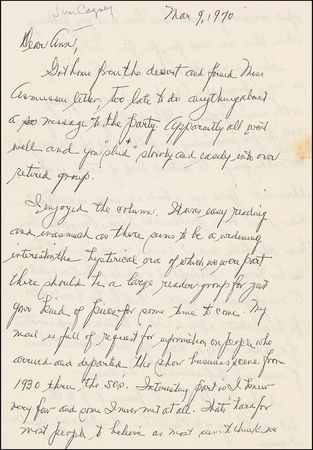 Jim Cagney
Mar 9, 1970
Dear Ann,
Got home from the desert and found Miss
Asmussen letter, too late to do anything about
a message to the party. Apparently all went
well and you "slid" slowly and easily into our
retired group.
I enjoyed the column. It was easy reading
and inasmuch as there seems to be a widening
interest in the hysterical era of which we were part
there should be a large reader group for just
your kind of piece for some time to come. My
mail is full of request for information on people who
arrived and departed the show business scene from
1930 thru the 50's. Interesting part is I knew
very few and some I never met at all. That's hard for
most people to believe as most seem to think we